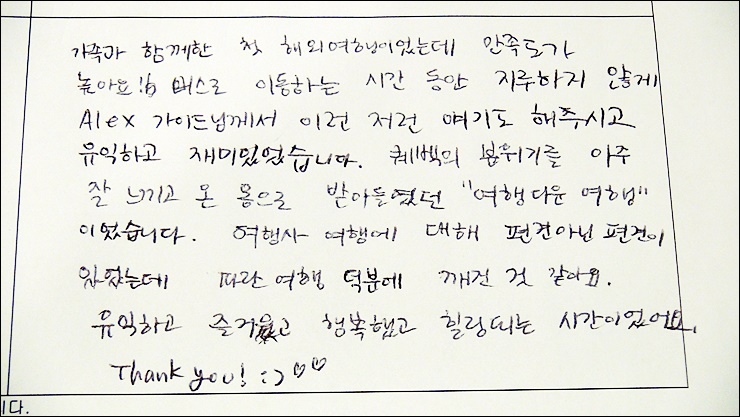 가족과 함께한 첫 해외여행이었는데 만족도가
높아요!! 버스로 이동하는 시간 동안 지루하지 않게
Alex 가이드님께서 이런 저런 얘기도 해주시고
유익하고 재미있었습니다. 퀘백의 분위기를 아주
잘 느끼고 온 몸으로 받아들였던 "여행다운 여행"
이었습니다. 여행사 여행에 대해 편견아닌 편견이
있었는데 파란여행 덕분에 깨진 것 같아요.
유익하고 즐거웠고 행복했고 힐링되는 시간이었어요.
Thank you! :) ♡♡
니다.